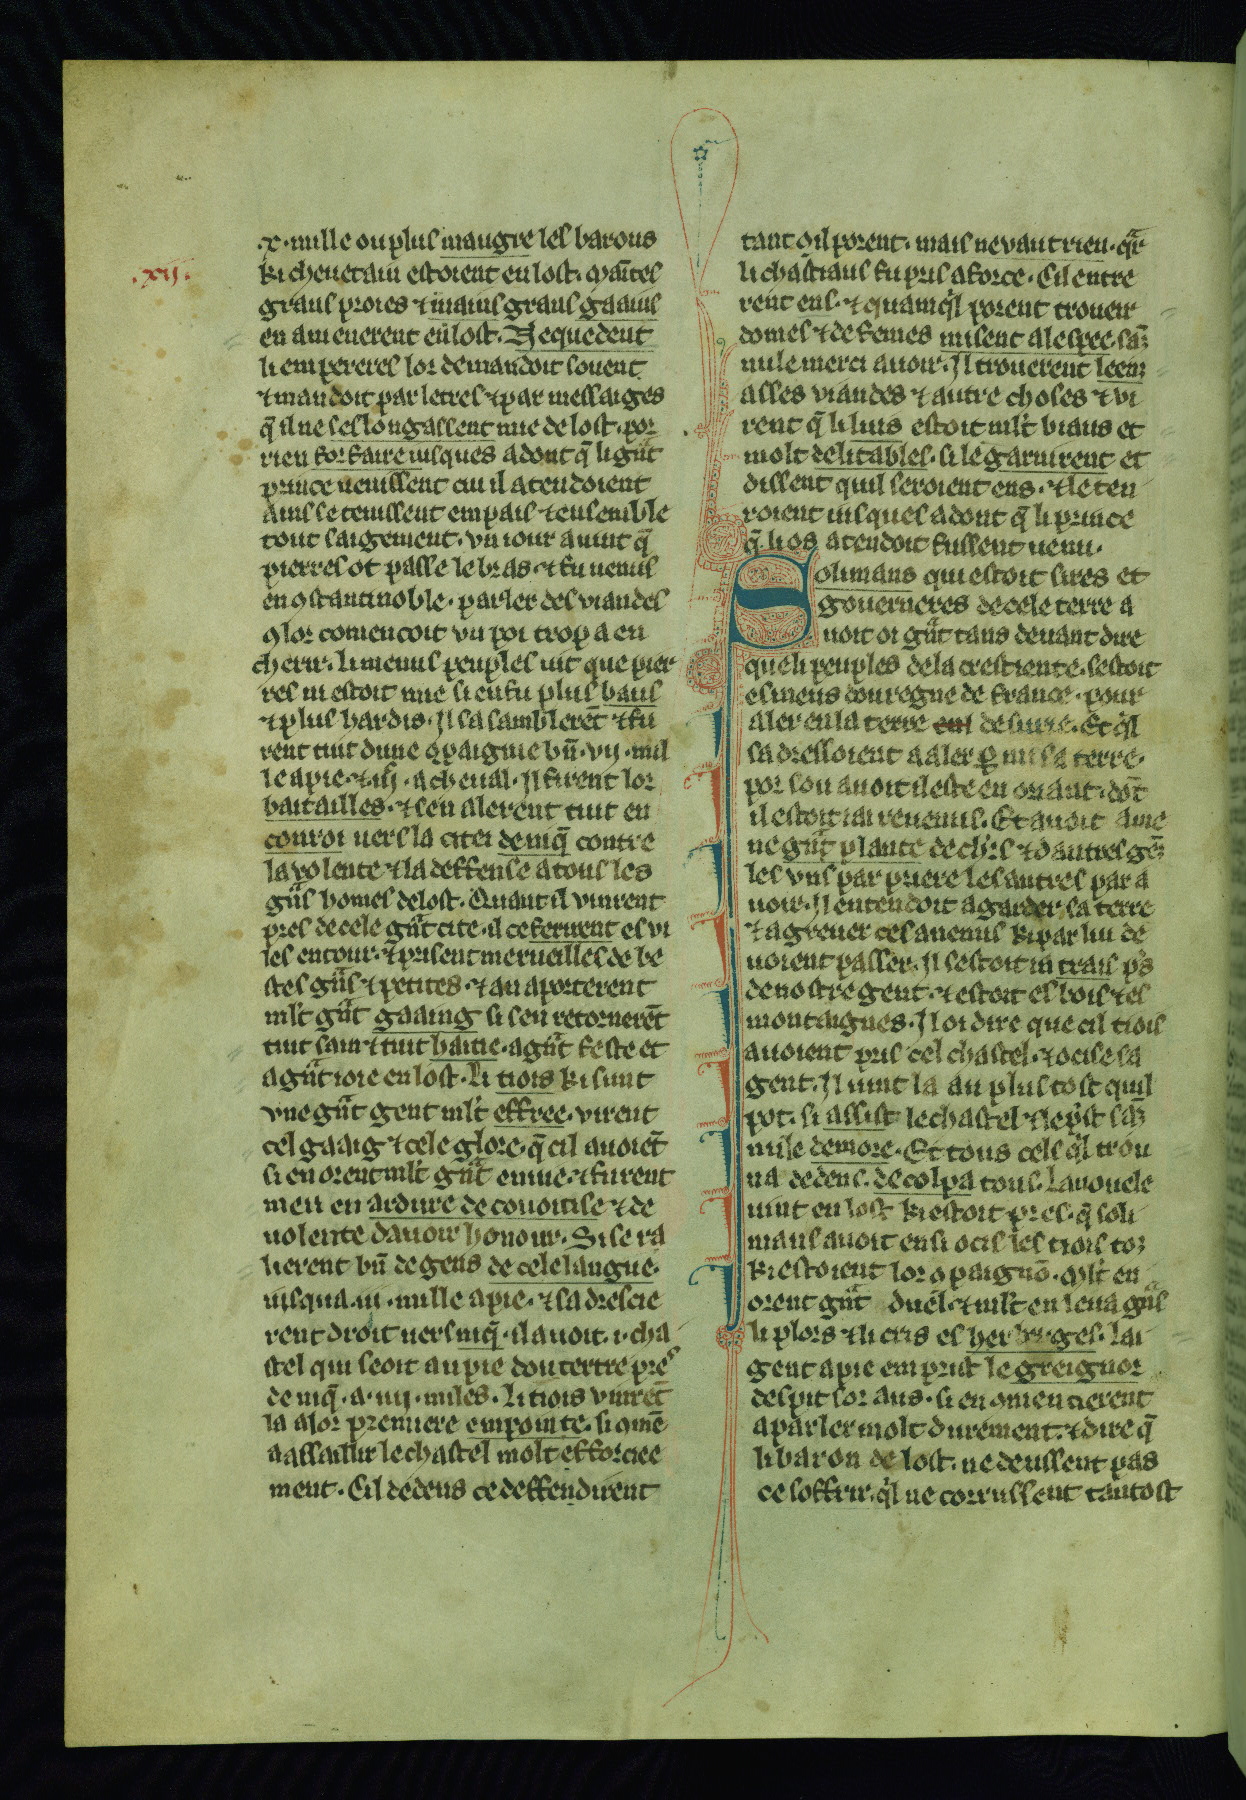 .xij.
.x. mille ou plus maugre les barons
ki chevetain estoient en lost. Maītes
grans proies ⁊ mains grans gaains
en amenerent en lost. Des que dent
li empereres lor demandoit souent
⁊ mandoit par letres ⁊ par messaiges
q̄ il ne ses longassent mie de lost. por
rien forfaire iusques adont q̄ li gūt
prince uenissent cui il atendoient
Ains se tenissent em pais ⁊ ensemble
tout saigement. vn iour auint q̄
pierres ot passe le bras. ⁊ fu uenus
en ɔstantinoble. parler des viandes
ɔ lor comencoit vn poi trop a en
cherir. li menus peuples uit que pier
res ni estoit mie si en fu plus baus
⁊ plus hardis. Il sa samblerēt ⁊ fu
rent tuit dune ɔpaignie bn̄. vij. mil
le a pie. ⁊ iij. a cheual. Il firent lor
baitailles. ⁊ sen alerent tuit en
conroi uers la citei de niq̄ contre
la volente ⁊ la deffense a tous les
gūs homes de lost. Quant il vinrent
pres de cele gūt cite. il ce ferirent es vi
les entour. ⁊ prisent merueilles de be
stes gūs ⁊ petites. ⁊ an aporterent
mlt gūt gaaing si sen retornerēt
tuit sain ⁊ tuit haitie. a gūt feste et
a gūt ioie en lost. li tiois ki sunt
vne gūt gent mlt effree. virent
cel gaaig ⁊ cele glore. q̄ cil auoiēt
si en orent mlt gūt enuie. ⁊ furent
meu en ardure de couoitise ⁊ de
uolente dauoir honour. Si se ra
lierent bn̄ de gens de cele langue.
iusqua .iii. mille a pie. ⁊ sa drescie
rent droit uers niq̄. il auoit .i. cha
stel qui seoit au pie dou tertre pres
de niq̄. a .iiij. miles. li tiois vinrēt
la a lor premiere empointe. si ɔmē
a assaillir le chastel molt efforciee
ment. Cil dedens ce deffendirent
tant ɔ il porent. mais ne vaut rien. q̄r
li chastiaus fu pris a force. Cil entre
rent ens. ⁊ quamq̄l porent trouer
domes ⁊ de femes misent a lespee. sāz
nule merci auoir. Il trouerent leenz
asses viandes ⁊ autre choses ⁊ vi
rent q̄ li lius estoit mlt biaus et
molt delitables. si le garnirent et
dissent quil seroient ens. ⁊ le ten
roient iusques adont q̄ li prince
q̄ li os atendoit fussent uenu.
Solimans qui estoit sires et
gouerneres de cele terre a
uoit oi gūt tans deuant dire
que li peuples de la crestiente. sestoit
esmeus dou regne de france. pour
aler en la terre de surie. Et q̄l
sa dressoient a aler ꝑ mi sa terre.
por sou auoit il este en oriant. dōt
il estoit iai reuenus. Et auoit ame
ne gūt plante de ch'rs ⁊ dautres gēz
les vns par priere les autres par a
uoir. Il entendoit a garder sa terre
⁊ a greuer ces auenus ki par lui de
uoient passer. Il sestoit ia trais p's
de nostre gent. ⁊ estoit es bois ⁊ es
montaignes. Il oi dire que cil tiois
auoient pris cel chastel. ⁊ ocise sa
gent. Il uint la au plus tost quil
pot. si assist le chastel ⁊ le p'st sāz
nule demore. Et tous cels q̄l trou
ua dedens. decolpa tous. La nouele
uint en lost ki estoit pres. q̄ soli
mans auoit ensi ocis les tiois toz
ki estoient lor ɔpaignō. Mlt en
orent gūt duel. ⁊ mlt en leua gūs
li plors ⁊ li cris es herbirges. lai
gent a pie em prist le greignor
despit sor aus. si en ɔmencierent
a parler molt durement. ⁊ dire q̄
li baron de lost. ne deussent pas
ce soffrir. q̄l ne corrussent tantost